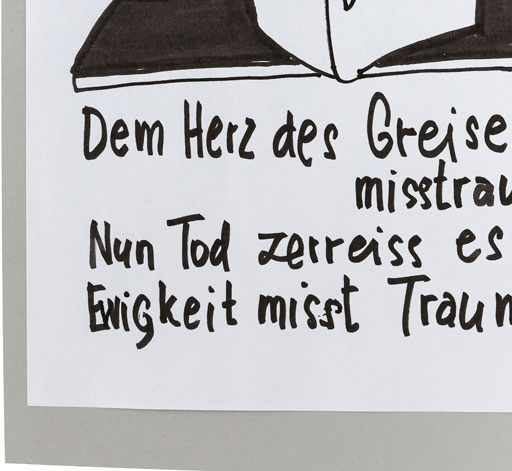 Dem Herz des Greise
misstrau
Nun Tod zerreiss es
Ewigkeit misst Traum